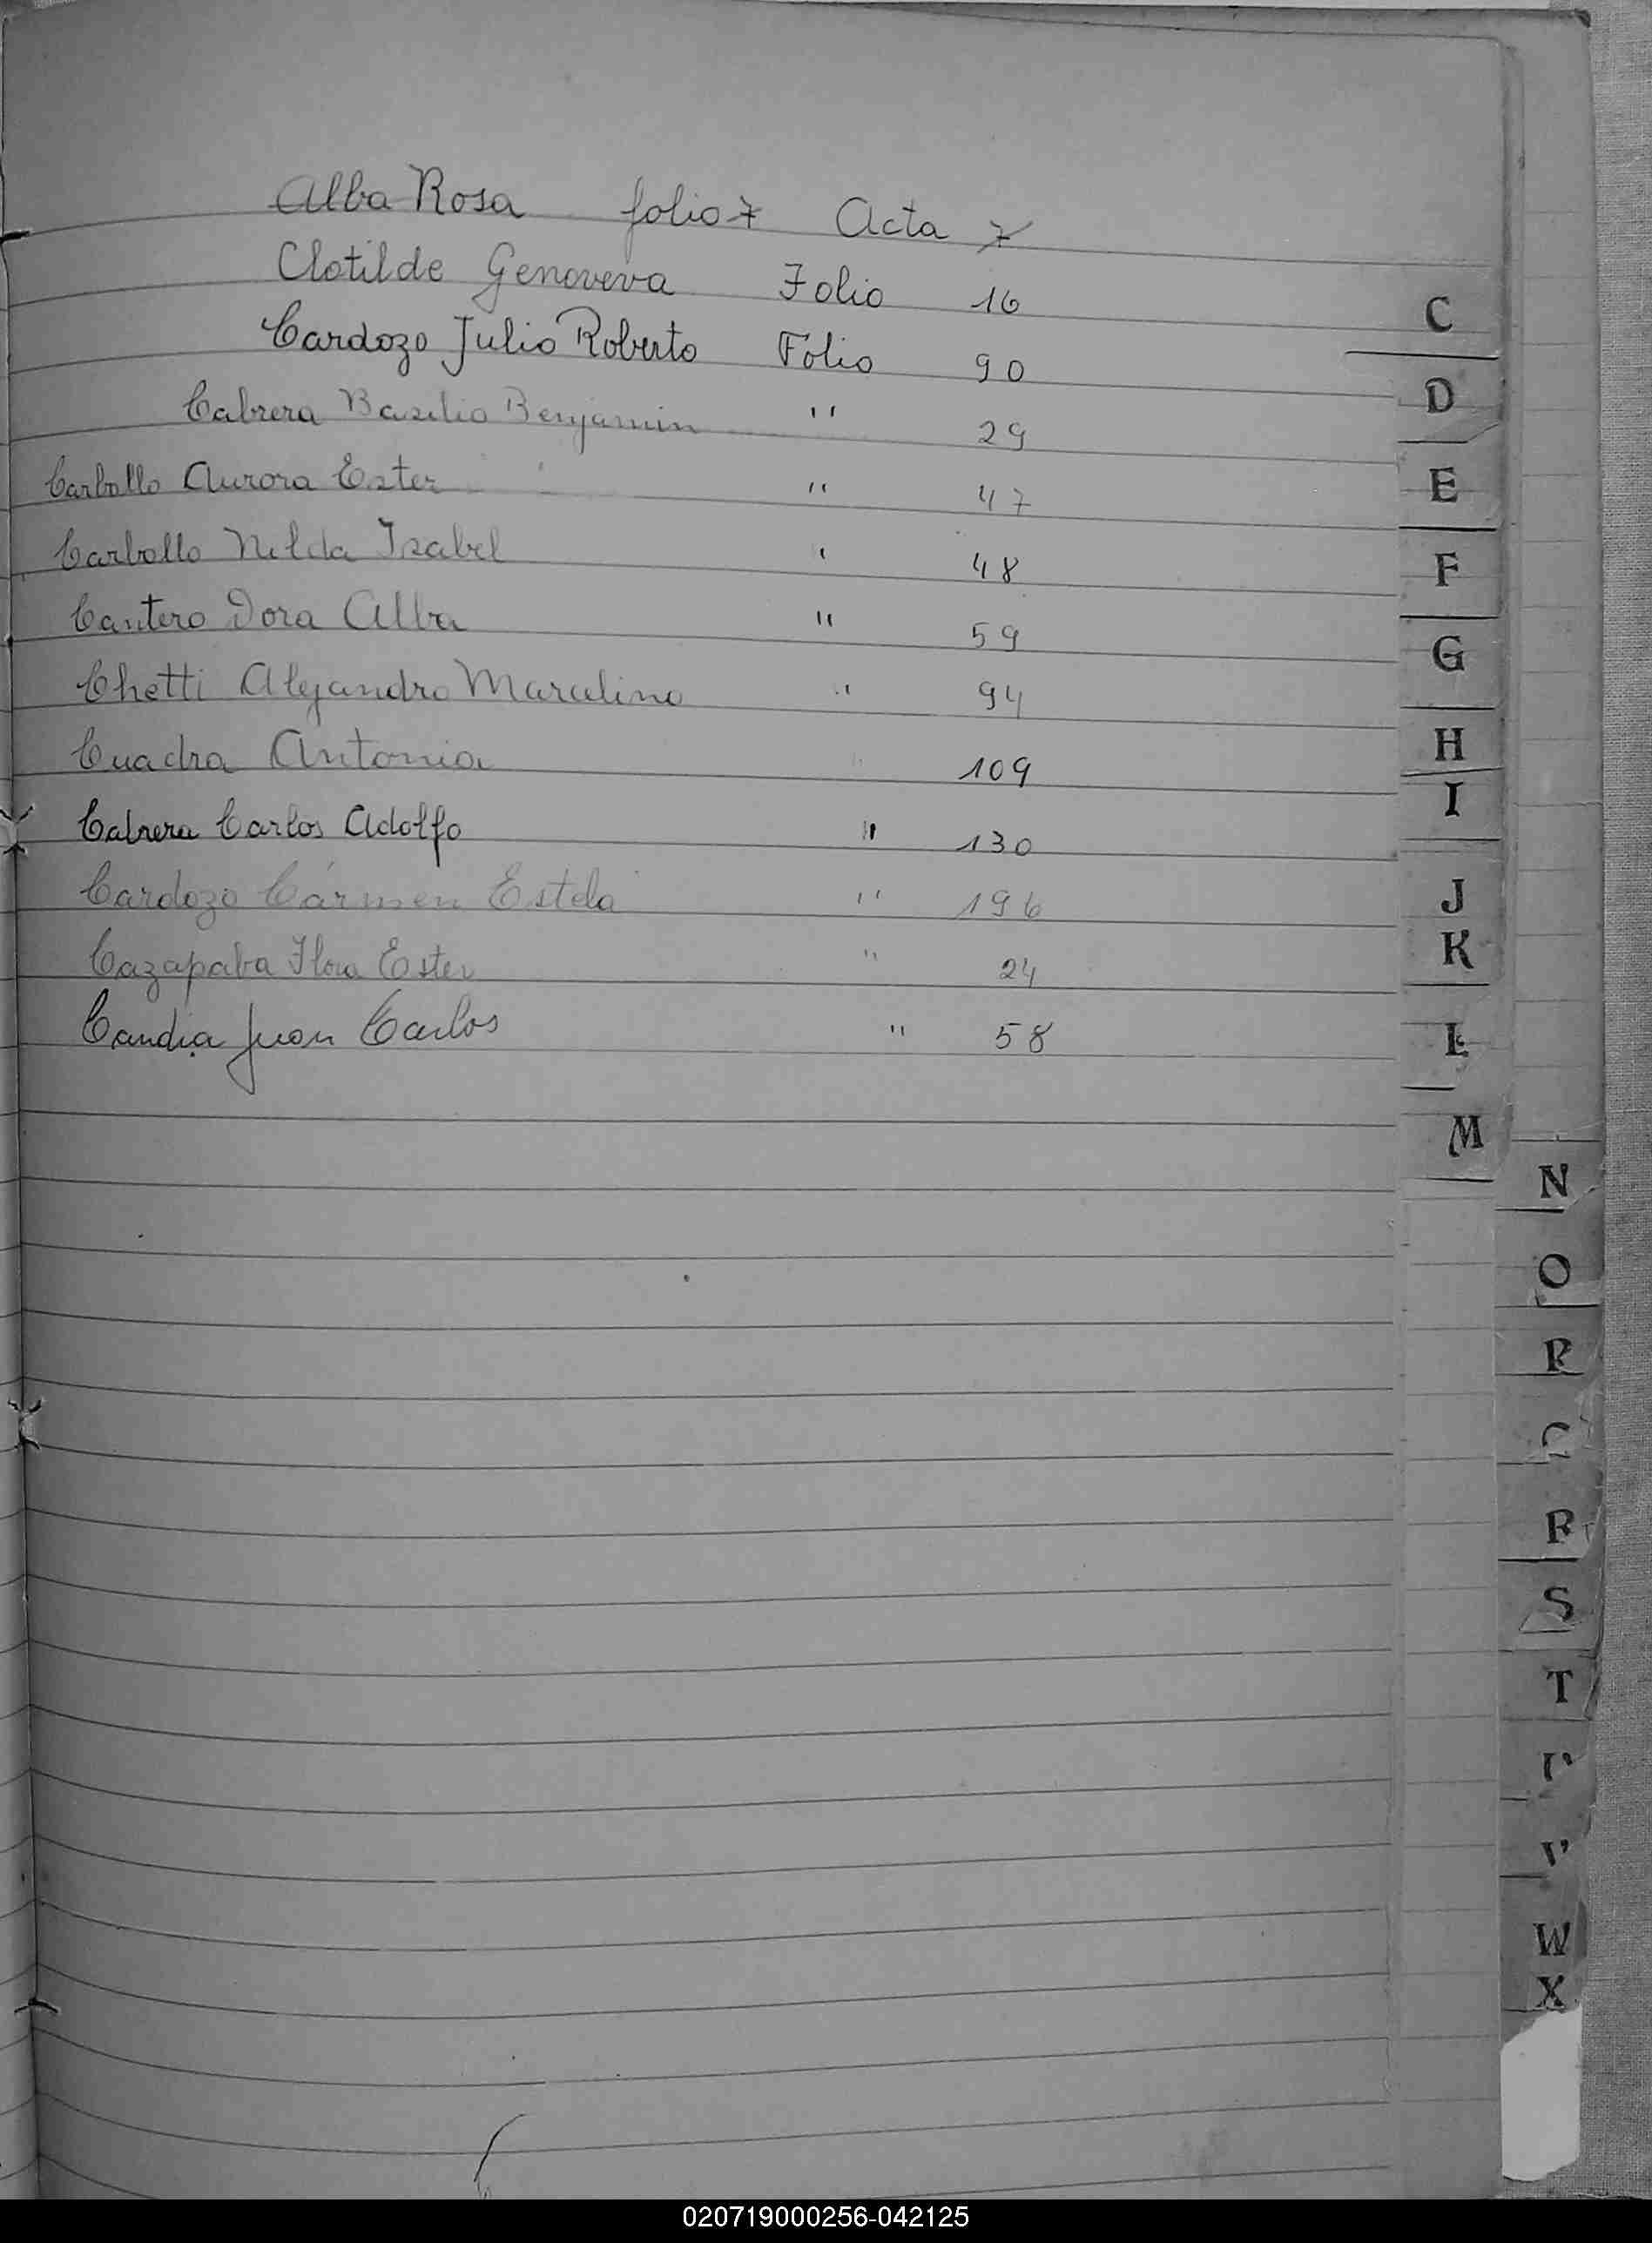 Alba Rosa folio 7 Acta 7
Clotilde Genoveva Folio 16
Cardozo Julio Roberto Folio 90
Cabrera Bazilio Benjamin " 29
Carballo Aurora Ester " 47
Carballo Nilda Isabel " 48
Cantero Dora Alba " 59
Chetti Alejandro Marcelino " 94
Cuadra Antonia " 109
Cabrera Carlos Adolfo " 130
Cardozo Cármen Estela " 196
Cazapaba Flora Ester " 24
Candia Juan Carlos " 58
C
D
E
F
G
H
I
J
K
L
M
N
O
R
S
T
V
W
X
020719000256-042125